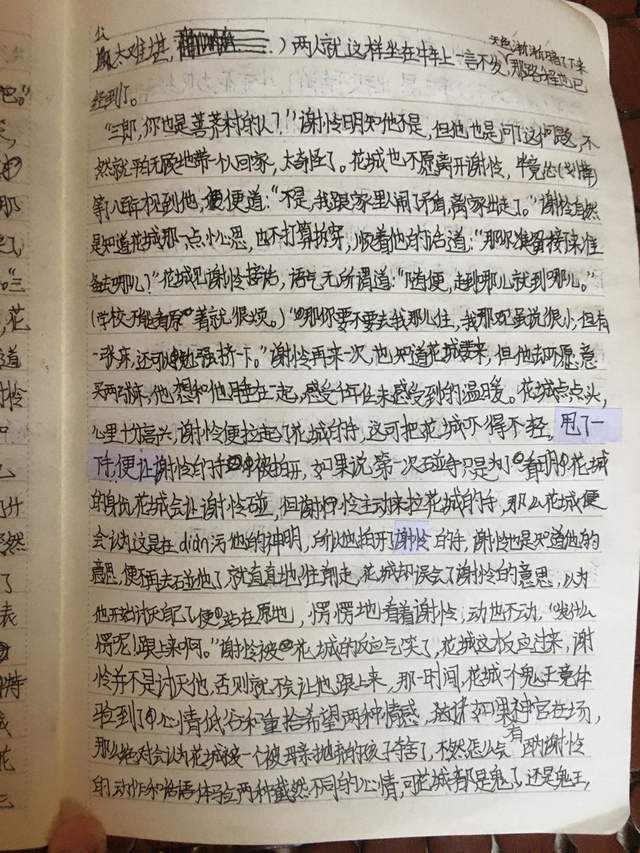 太难堪,)两人就这样坐在牛车上一言不发,天色渐渐暗了下来那路程也已
经到了。
“三郎,你也是菩荠村的人?”谢怜明知他不是,但他也是问了这问题,不
然就平白无顾地带一个人回家,太奇怪了。花城也不愿离开谢怜,毕竟
等人,便便道:“不是,我跟家里人闹了矛盾,离家出走了。”谢怜自然
是知道花城那一点小心思,也不打算拆穿,顺着他的话道:“那你准备接下来准
备去哪儿?”花城见谢怜接话,语气无所谓道:“随便,走到哪儿就到哪儿。”
“那你要不要去我那儿住,我那观虽说很小,但有
一张床,还可以勉强挤一下。”谢怜再来一次,也知道花城要来,但他却不愿意
买两张床,他想和他睡在一起,感受千年任未感受到的温暖。花城点点头,
心里十分高兴,谢怜便拉起了花城的手,这可把花城吓得不轻,甩了一
下,便让谢怜的手被拍开,如果说,第一次石碰手只是为了看明花城
的身份,花城会让谢怜碰,但谢怜主动来拉花城的手,那么花城便
会认为这是在diàn污他的神明,所以他拍开了谢怜的手,谢怜也是知道他的
意思,便不再去石碰他了,就直直地往前走,花城却误会了谢怜的意思,以为
他开始讨厌自己了,便站在原地,愣愣地看着谢怜,动也不动,“发什么
愣呢,跟上来啊。”谢怜被花城的反应气笑了,花城这才反应过来,谢
怜并不是讨厌他,否则就不会让他跟上来,那一时间,花城个鬼王竟体
验到了心情低谷和重拾希望两种情感,如果神官在场,
那么绝对会认为花城被一个被母亲抛弃的孩子夺舍了,不然怎么会有因为谢怜
的动作和话语体验两种截然不同的心情,可花城都是鬼了,还是鬼王,